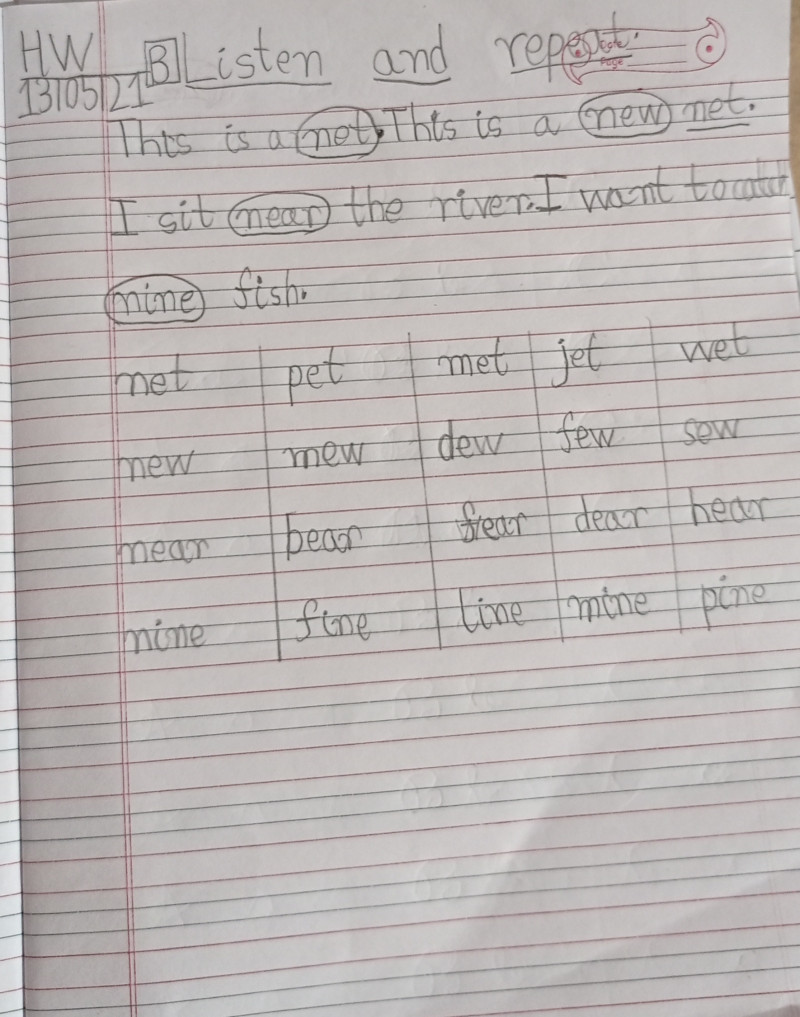 HW B Listen and repeat.
13/05/21
Date
Page
This is a net. This is a new net.
I sit near the river. I want to catch
nine fish.
net pet met jet wet
new mew dew few sow
near bear fear dear hear
nine fine line mine pine